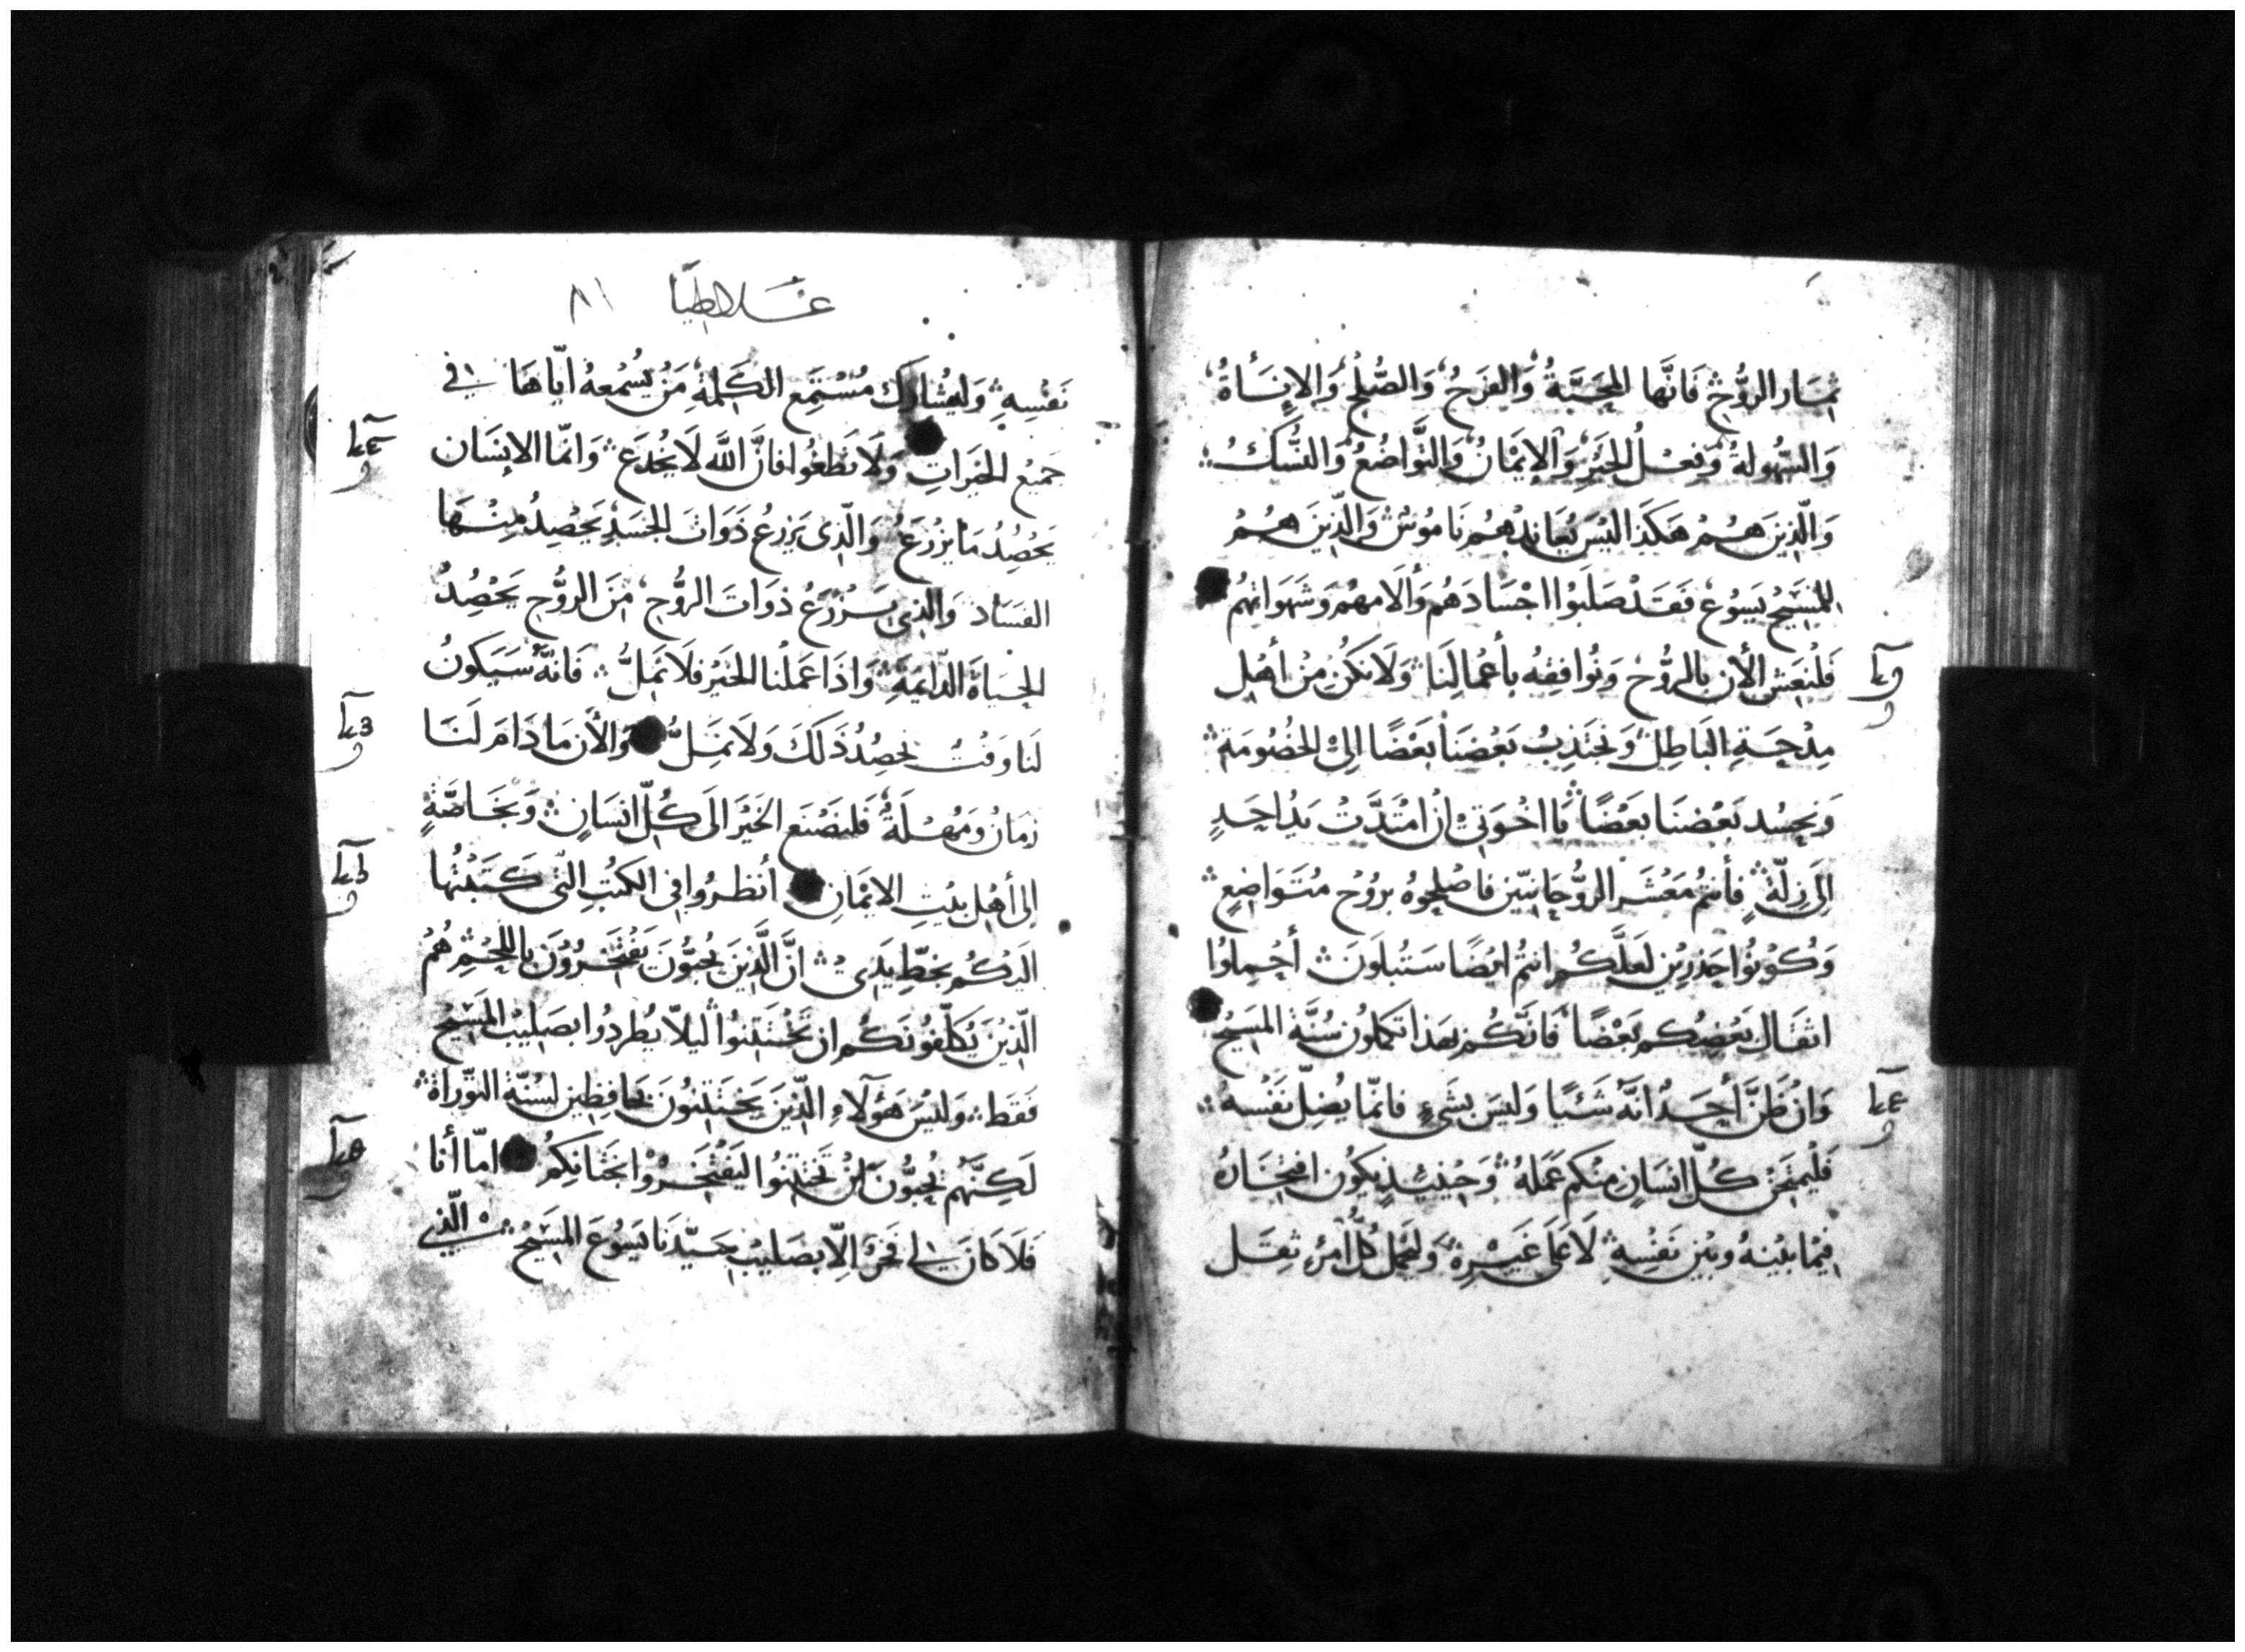 ثِمَار الرُّوُحِ فَانَّها المحَبَّةُ وَالفَرَحُ وَالصُّلحُ وَالإِنَاةُ
وَالسُّهولةُ وَفعْلُ الخَيْرِ وَالإيْمَانُ وَالتَّواضُعُ وَالنُّسُكُ
وَالّذِينَ هُمْ هَكَذا ليْسَ يُعَانِدُهُم نَامُوسٌ وَالّذِينَ هُمْ
للمَسَيْحِ يَسوُع فَقَدْ صَلَبُوا اجْسَادَهُم وَآلامهُم وَشَهَواتِهُم
فَلْنَعِشِ الأن بالرُّوُح وَنُوَافِقِهُ بأَعْمالِنَا وَلَا نَكُنْ مِنْ أهْلِ
مِدْحَةِ البَاطِلْ وَنَجْتَذِبُ بَعْضَنا بَعْضًا الِىَ الخصُومَة
وَنحسُد بَعْضنَا بَعْضًا يَا اخْوَتِى ان امْتَدَّتْ يَدُ احَدٍ
اِلَى زِلّةٍ فأَنتمُ مَعْشَر الرُّوُحَانِيّين فاصْلحوُهُ بروُح مُتَوَاضِعٍ
وَكُوْنُوُا حَذرِيْن لَعلَّكُم انتمُ ايْضًا سَتُبلَونَ أحْمِلوُا
اثقَال بَعْضِكم بَعْضًا فانّكُم بهَذا تكملوُن سُنَّة المسَيْحِ
وَان ظَنَّ أحَدٌ انَّهُ شَئيًا وَليسَ بِشَىءٍ فانمّا يُضِلّ نَفْسهُ
فَلْيَمتَحِنْ كُلّ انسَانٍ منكُم عَمَلهُ وَحِيْنَيِذٍ يَكُون افتِخَارُهُ
فِيْمَا بيْنهُ وبيْن نَفْسِهِ لَا عَلىَ غَيْرِهِ وَليَحمل كُلّ امرءٍ ثقِل
غَلاطِيَا ٨١
نَفْسِهِ وَليُشارِك مُسْتَمِع الكَلِمَةِ مَنْ يُسْمعهُ ايّاهَا فى
جَميْع الخيَراتِ وَلَا تَطغُوا فانَّ اللَّه لَا يُخدَع وَانمّا الإنسَان
يَحْصِدُ مَا يزْرَعُ وَالّذِى يَزرعُ ذَوَاتَ الجسَدِ يَحْصِدُ مِنْهَا
الفسَاد وَالذِى يَزْرَعُ ذوَاتَ الرُّوُحِ مِنَ الرُّوُحِ يَحْصِدُ
الحيَاةَ الدّايمَةِ وَاذَا عَملْنا الخيْر فَلَا نَمَلُّ فَانَّهُ سَيَكونُ
لَنا وَقْتٌ نحصِدُ ذَلَكَ وَلَا نَمَلُّ وَالأن مَا دَامَ لَنَا
زمَانٌ وَمُهْلَةٌ فَلنصْنَع الخَيْر الَى كُلّ انسَانٍ وَبخَاصَّةٍ
إلى أهْل بيْتِ الايْمَانِ أنظرُوا فى الكتُبِ الّتى كَتَبْتُها
اليْكُم بخطِّ يَدِى انَّ الَّذِينَ يُحبُّونَ يَفْتَخرُوُنَ باللَّحْمِ هُمْ
الّذِيْنَ يُكَلّفونَكُم ان تَخْتَتنوُا ليلاّ يُطردُوا بصَلِيْب المسَيْح
فَقَط وَليْسَ هَؤلَاءِ الّذِيْنَ يَختَتِنوُن بحَافِظِين لسُنّة التّورَاةِ
لَكِنَّهُم يُحِبُّونَ اَنْ تَخْتتِنوُا ليَفْتَخرُوُا بختَانكِمُ امّا أنا
فَلَا كَانَ لِى فَخْرٌ اِلّا بصَليْب سَيّدنَا يَسُوْعَ المسَيْح الّذِى